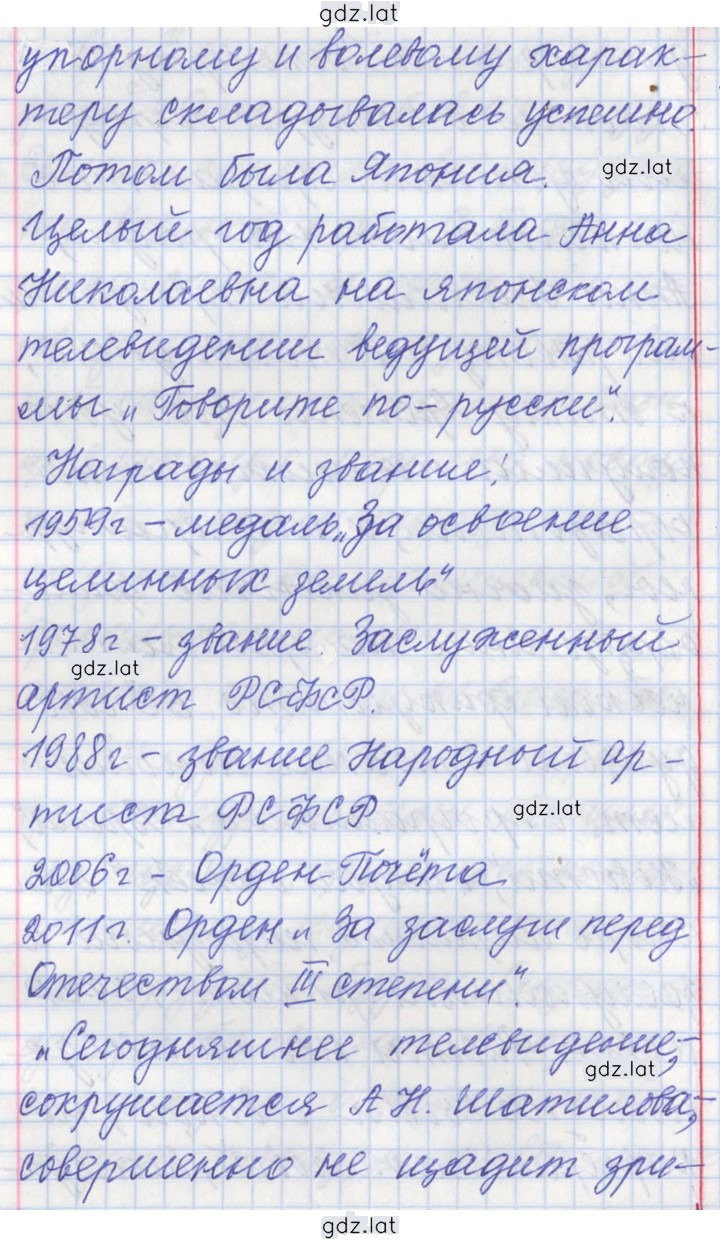 gdz.lat
упорному и волевому харак-
теру складывалась успешно.
Потом была Япония.
gdz.lat
Целый год работала Анна
Николаевна на японском
телевидении ведущей програм-
мы „Говорите по-русски".
Награды и звание:
1959г – медаль „За освоение
целинных земель"
1978г – звание Заслуженный
gdz.lat
артист РСФСР.
1988г – звание Народный ар-
тиста РСФСР
gdz.lat
2006г – Орден Почёта
2011г. Орден „За заслуги перед
Отечеством III степени".
„Сегодняшнее телевидение,
gdz.lat
сокрушается А Н. Шатилова,
совершенно не щадит зри-
gdz.lat